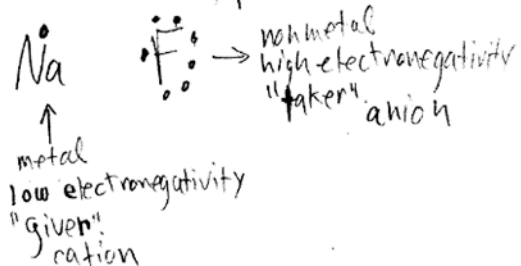 Na
F → nonmetal
high electronegativity
"taker"
anion
metal
low electronegativity
"giver"
cation